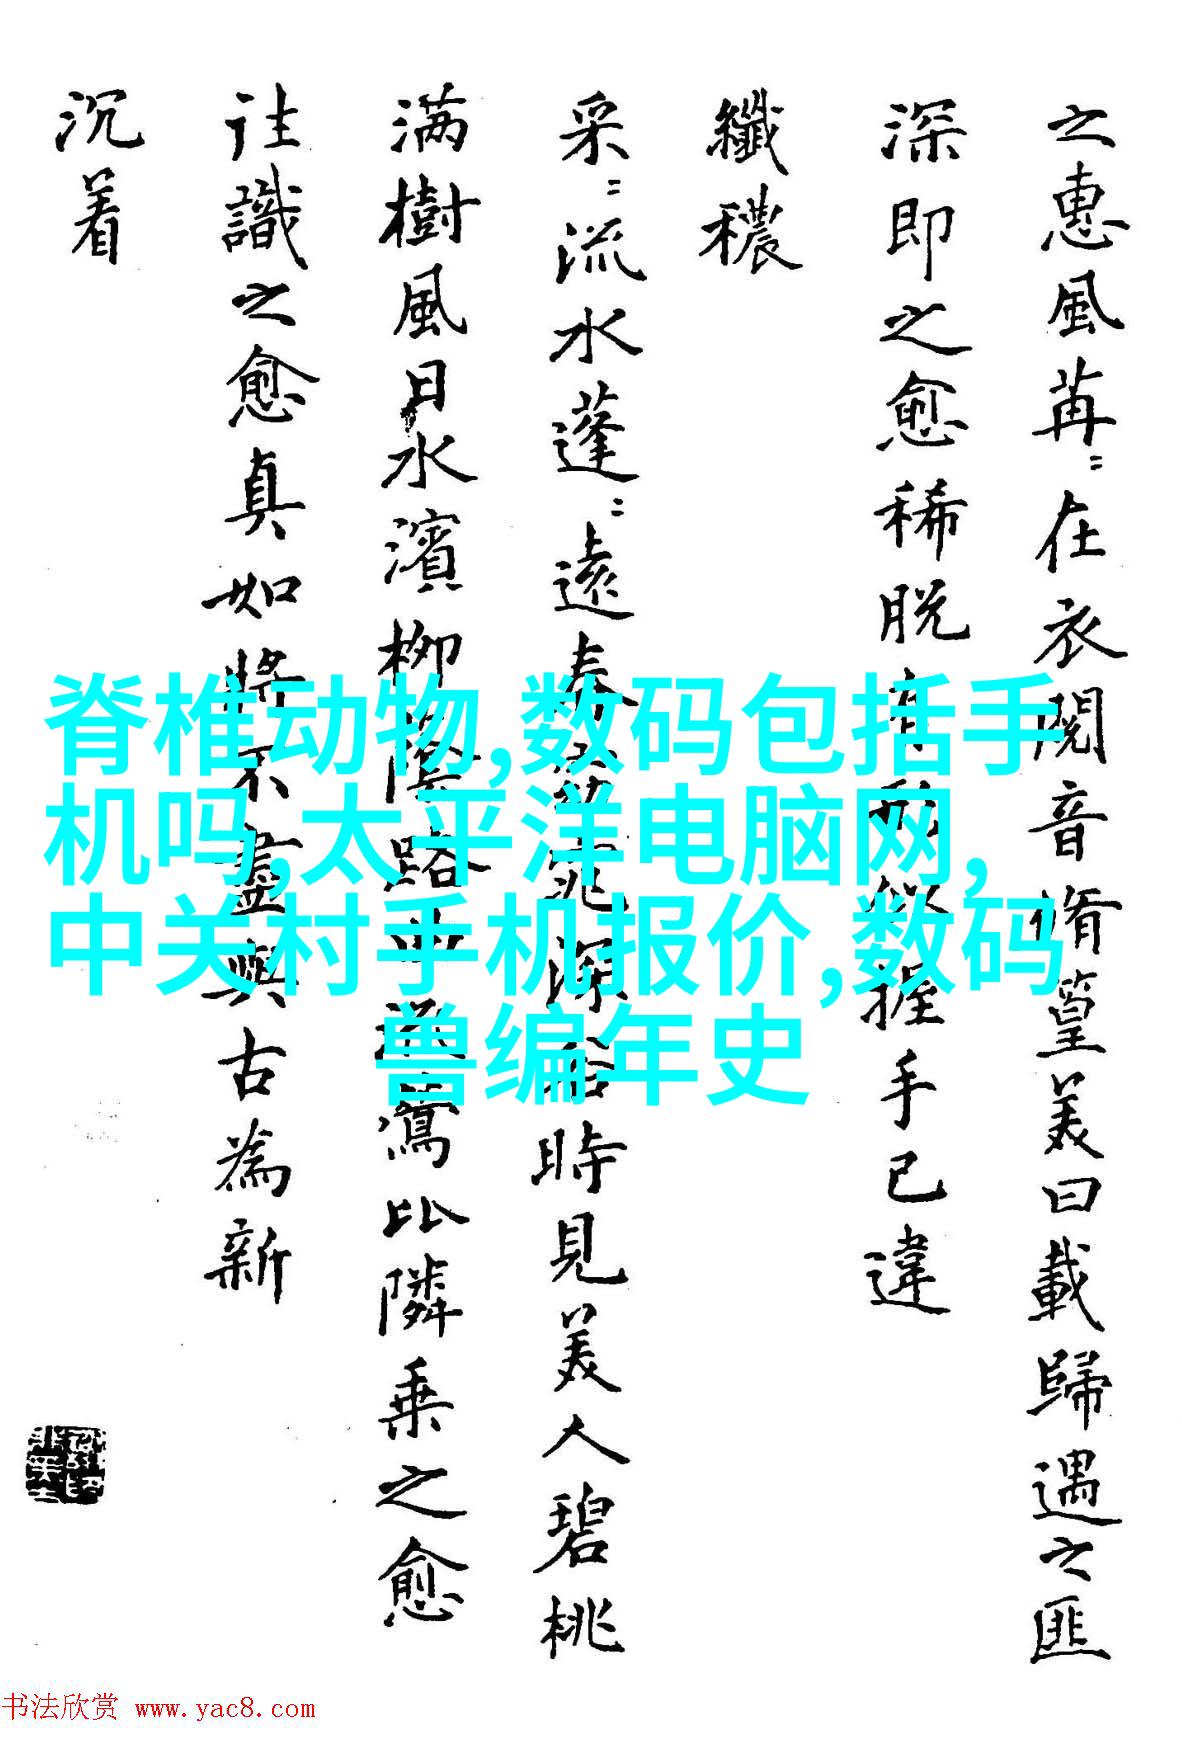 之惠風苒〻在衣閱音脩篁美曰載歸遇之匪
深即之愈稀脫有形似握手已違
纖穠
采〻流水蓬〻遠春窈窕深谷時見美人碧桃
满樹風日水濱柳陰路曲流鶯比隣乗之愈
往識之愈真如將不盡與古為新
沉着
脊椎动物,数码包括手
机吗,太平洋电脑网,
中关村手机报价,数码
兽编年史
书法欣赏 www.yac8.com